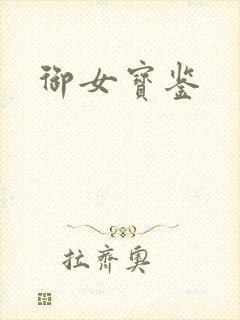 御女寳鉴
拉齊奥